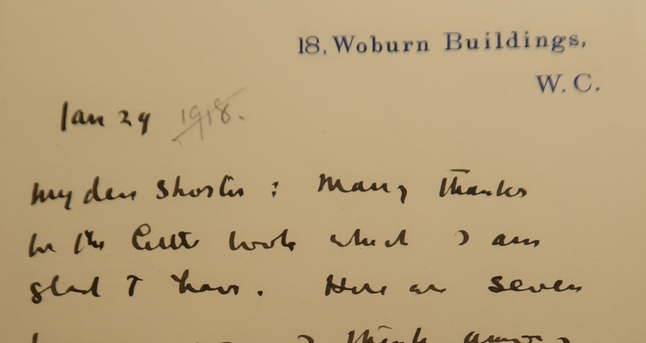 18, Woburn Buildings,
W. C.
Jan 29 1918.
My dear Shorter: Many thanks
for the little book which I am
glad to have. Here are seven
I think among